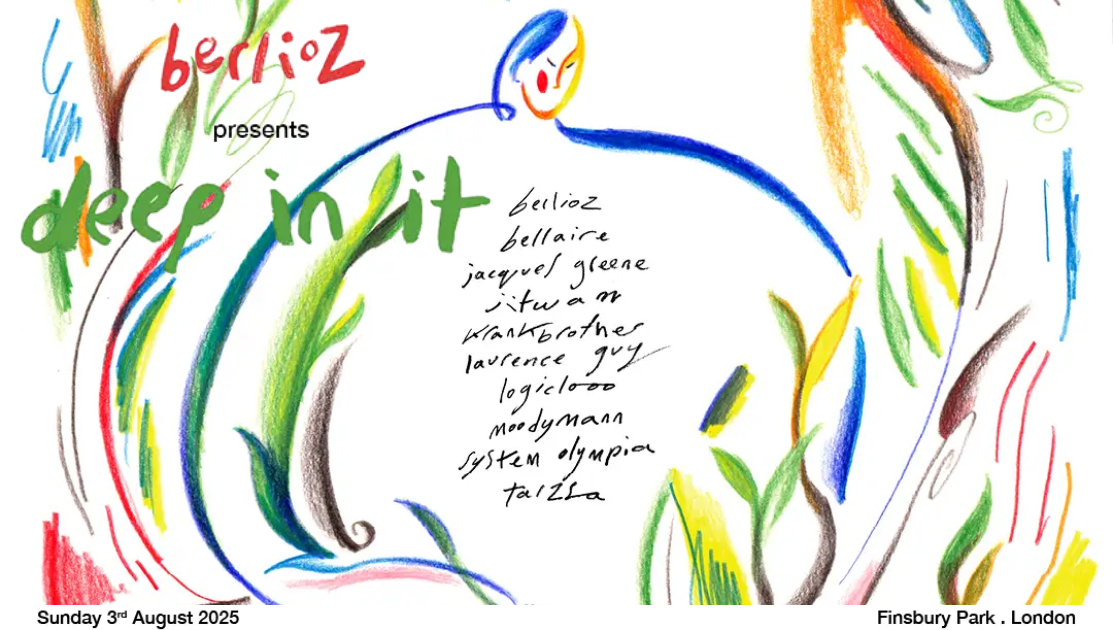 berlioz
presents
deep in it
berlioz
bellaire
jacques greene
jitwam
krankbrother
laurence guy
logic1000
moodymann
system olympia
taizSa
Sunday 3rd August 2025
Finsbury Park . London